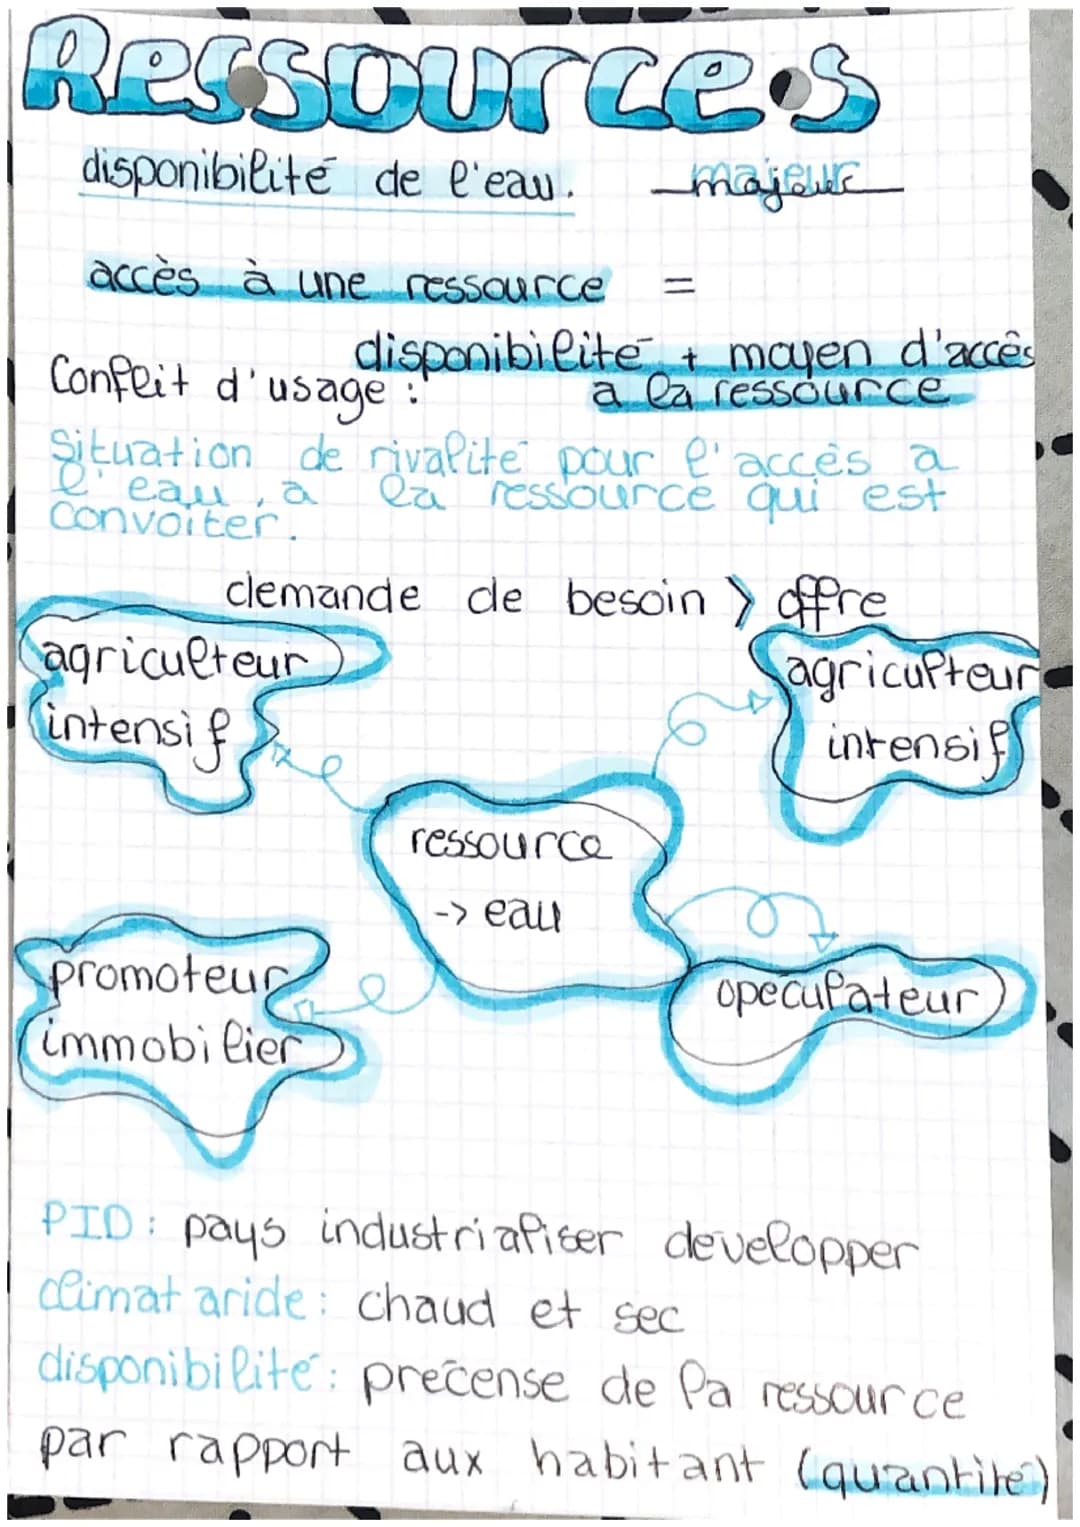 Ressources
disponibilité de l'eau. majeure
accès à une ressource =
disponibilité + moyen d'accès
a la ressource
Conflit d'usage :
Situation de rivalité pour l'accès a
l'eau, a la ressource qui est
convoiter.
demande de besoin > offre
agriculteur
intensif
agriculteur
intensif
ressource
-> eau
promoteur
immobilier
opéculateur
PID: pays industrialiser développer
climat aride: chaud et sec
disponibilité: précense de la ressource
par rapport aux habitant (quantité)